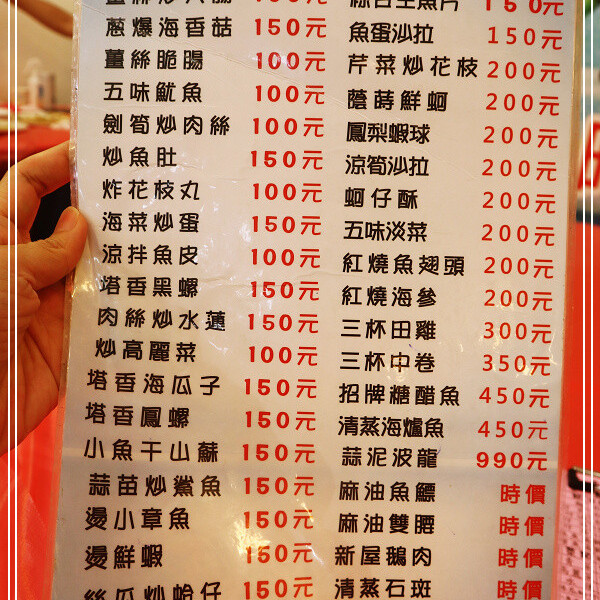 蔥爆海香菇 150元
薑絲脆腸 100元
五味魷魚 100元
劍筍炒肉絲 100元
炒魚肚 150元
炸花枝丸 100元
海菜炒蛋 150元
涼拌魚皮 100元
塔香黑螺 150元
肉絲炒水蓮 150元
炒高麗菜 100元
塔香海瓜子 150元
塔香鳳螺 150元
小魚干山蘇 150元
蒜苗炒鯊魚 150元
燙小章魚 150元
燙鮮蝦 150元
絲瓜炒蛤仔 150元
綜合生魚片 150元
魚蛋沙拉 150元
芹菜炒花枝 200元
蔭蒔鮮蚵 200元
鳳梨蝦球 200元
涼筍沙拉 200元
蚵仔酥 200元
五味淡菜 200元
紅燒魚翅頭 200元
紅燒海參 200元
三杯田雞 300元
三杯中卷 350元
招牌糖醋魚 450元
清蒸海爐魚 450元
蒜泥波龍 990元
麻油魚鰾 時價
麻油雙腰 時價
新屋鵝肉 時價
清蒸石斑 時價